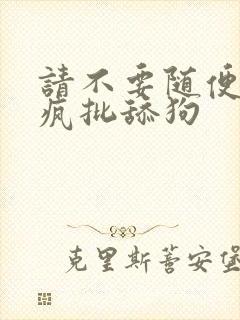 請不要随便
瘋批舔狗
克里斯蒈安堡